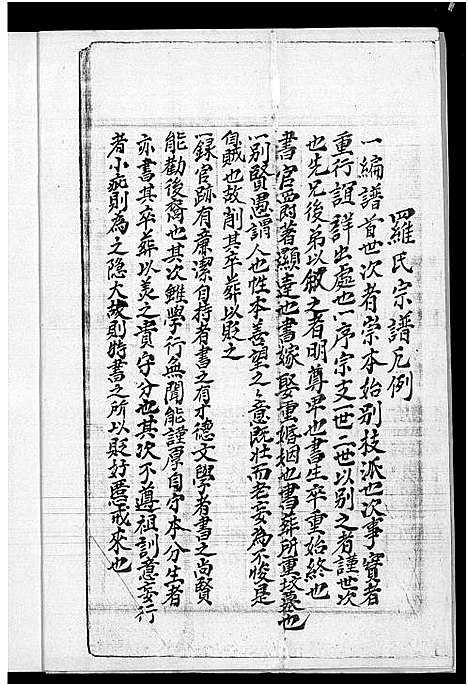 羅氏宗譜凡例
一編譜首世次者崇本始别枝派也次事實者
重行誼詳出處也一序宗支一世二世以别之者謹世次
也先兄後弟以叙之者明尊卑也書生卒重始終也
書官爵著顯達也書嫁娶重婚姻也書葬所重坟墓也
以别賢愚謂人也性本善望之之意既壯而老妄為不悛是
自賊也故削其卒葬以贬之
一録官跡有廉潔自持者書之有才德文學者書之尚賢
能勸後裔也其次雖學行無聞能謹厚自守本分生者
亦書其卒葬以美之實守分也其次不遵祖訓意妄行
者小疵則為之隐大故則特書之所以贬好惡戒來也